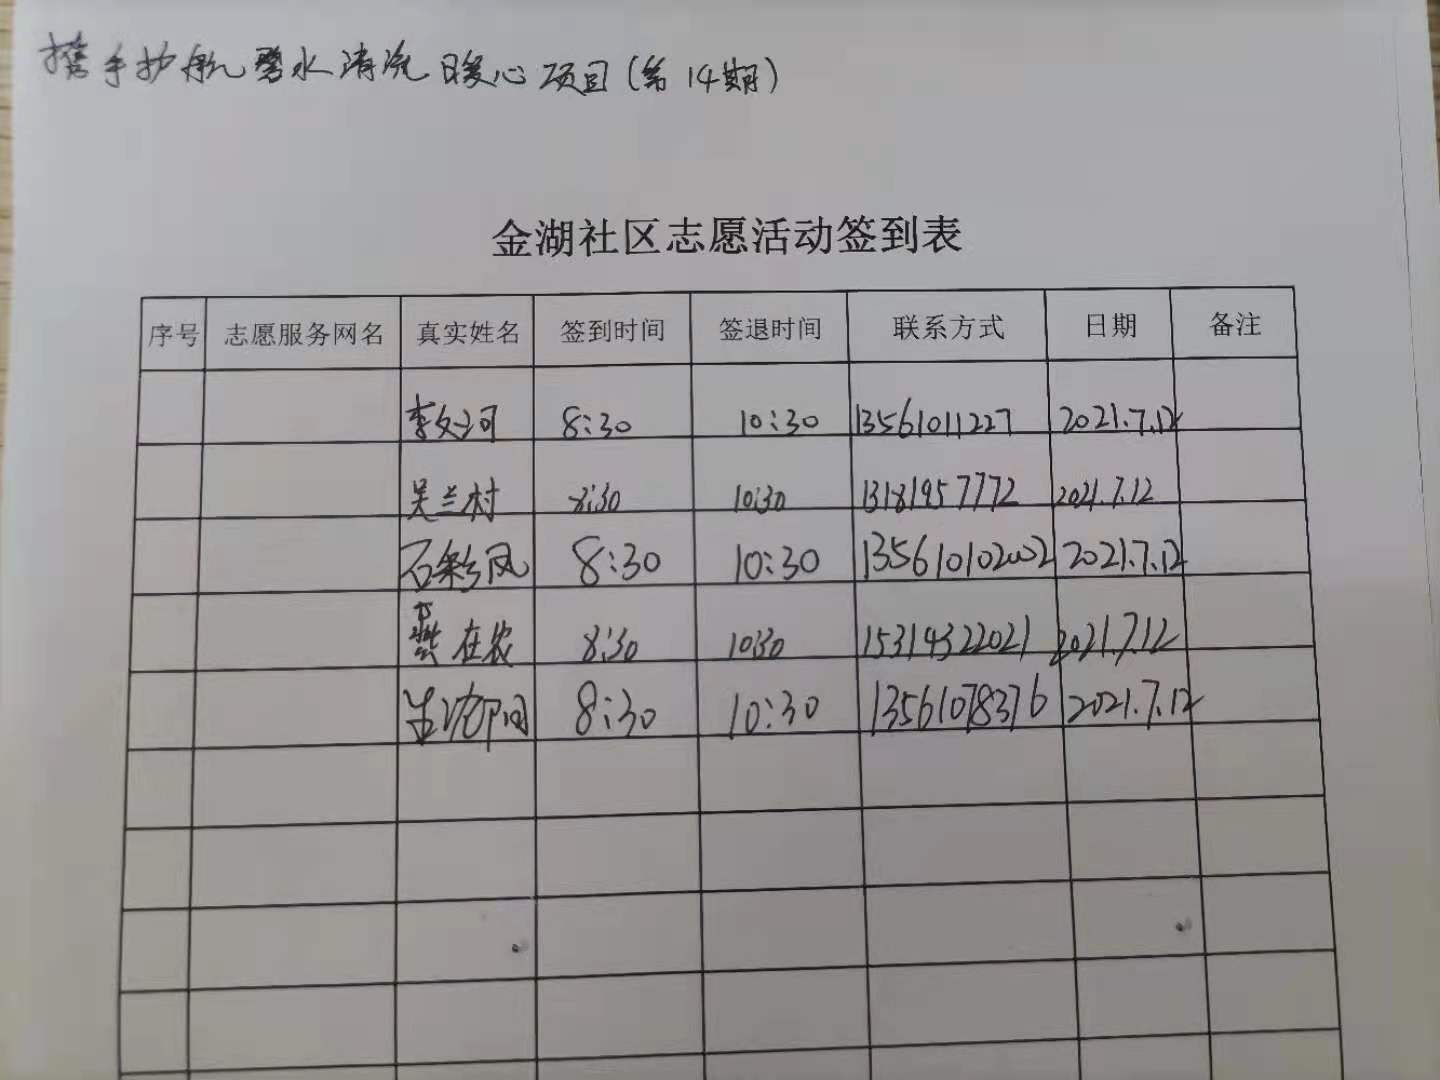 携手护航碧水清流暖心项目(第14期)
金湖社区志愿活动签到表
序号 志愿服务网名 真实姓名 签到时间 签退时间 联系方式 日期 备注
李文河 8:30 10:30 13561011227 2021.7.12
吴兰村 8:30 10:30 13181957772 2021.7.12
石彩凤 8:30 10:30 135610102002 2021.7.12
在农 8:30 10:30 15314322021 2021.7.12
8:30 10:30 13561078376 2021.7.12